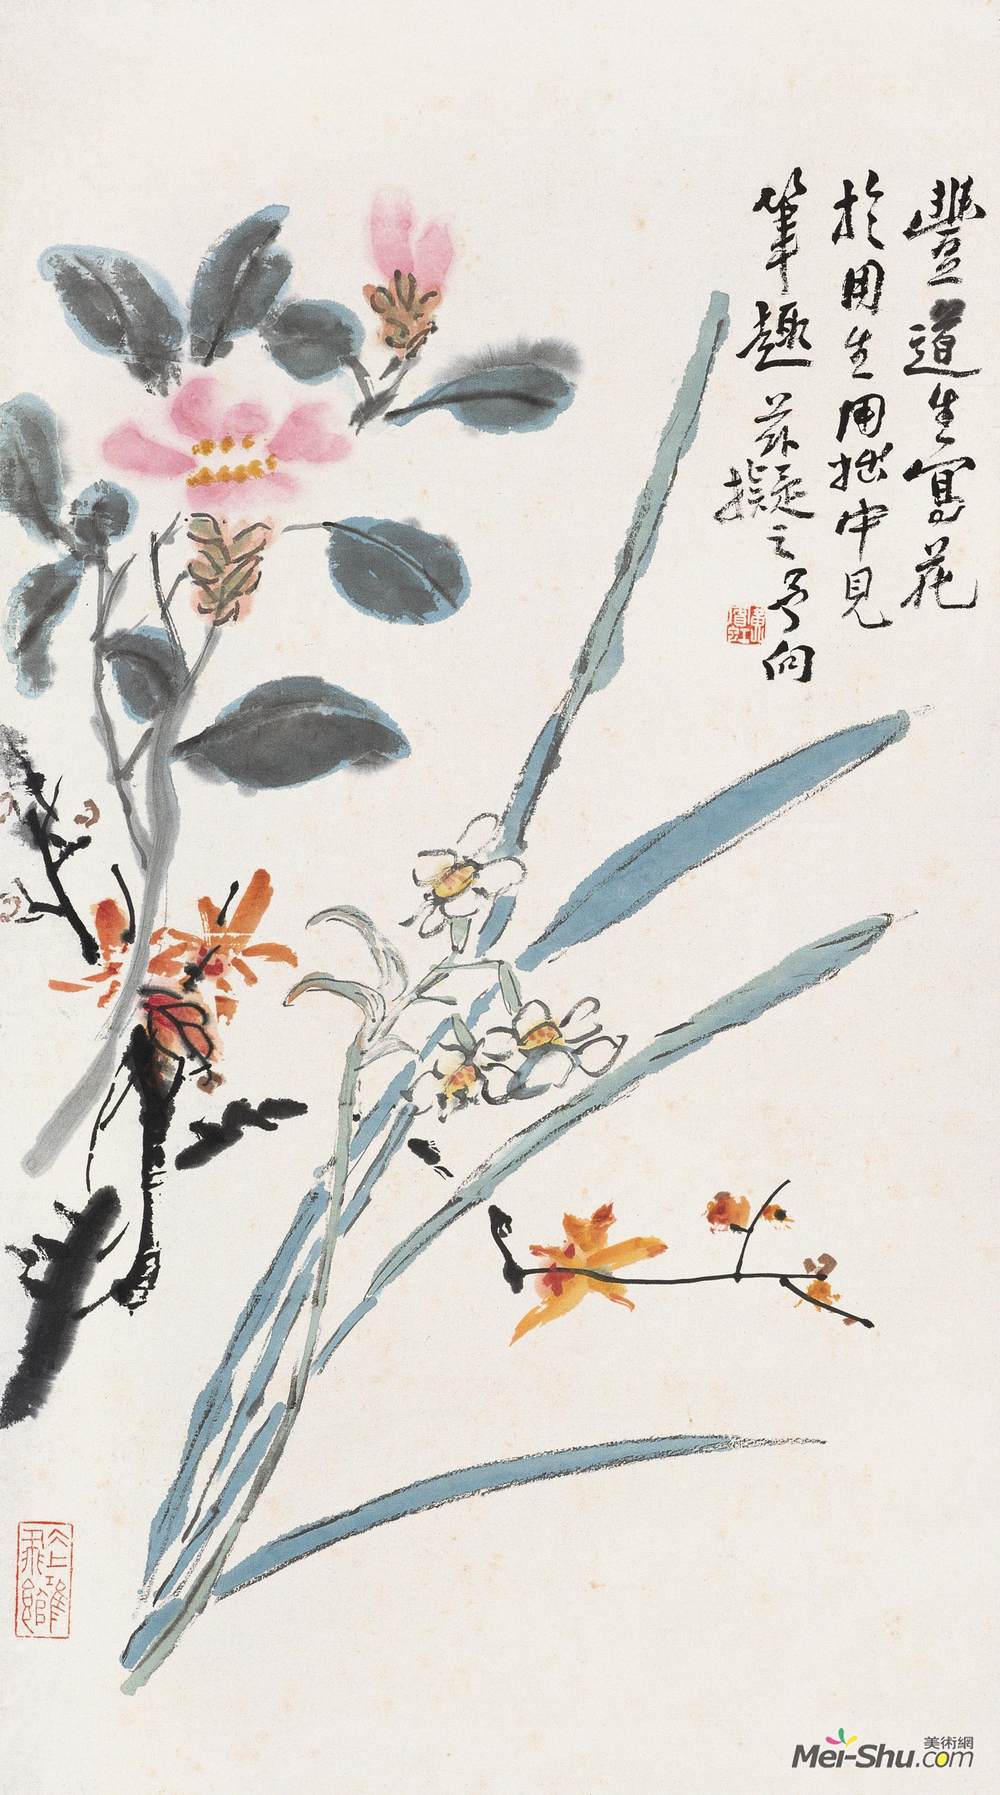 豐道生寫花
於用生用拙中見
筆趣茲擬之予向
黃賓虹
美術網
Mei-Shu.com